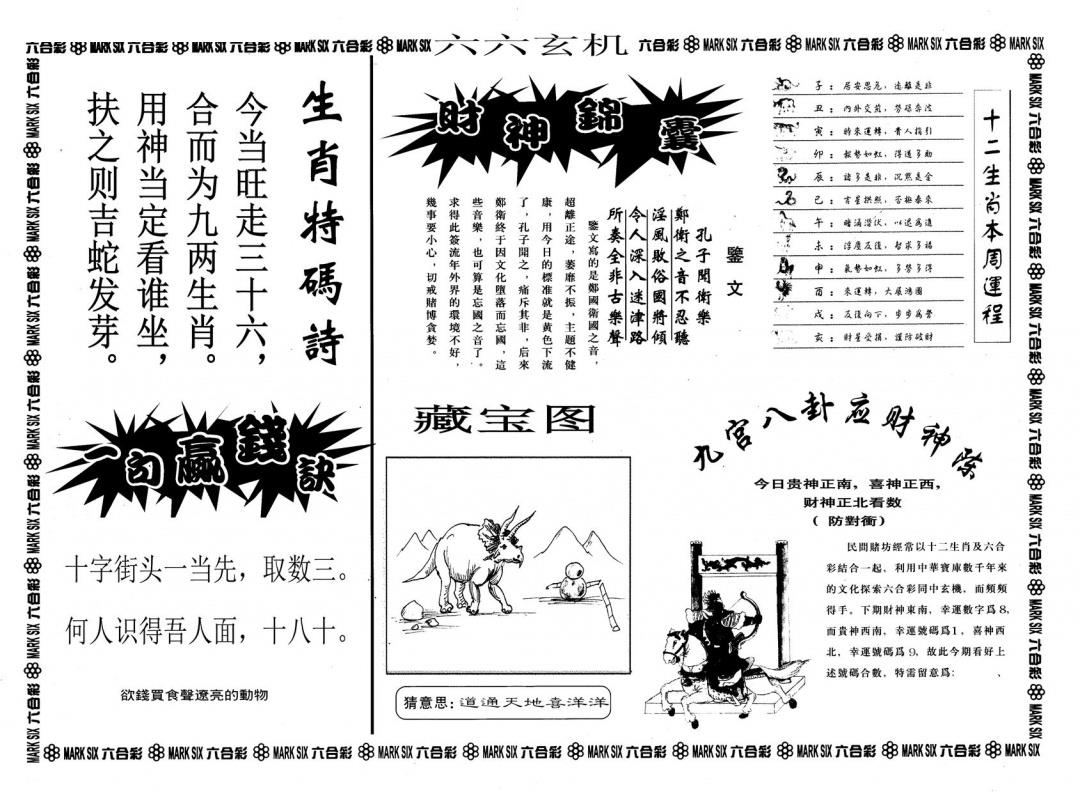 六合彩 MARK SIX 六合彩 MARK SIX 六合彩 MARK SIX 六合彩 MARK SIX 六六玄机 六合彩 MARK SIX 六合彩 MARK SIX 六合彩 MARK SIX 六合彩 MARK SIX
生肖特碼詩
今当旺走三十六，
合而为九两生肖。
用神当定看谁坐，
扶之则吉蛇发芽。
一句赢錢訣
十字街头一当先，取数三。
何人识得吾人面，十八十。
欲錢買食聲遼亮的動物
財神錦囊
鑒文
孔子聞衛樂
鄭衛之音不忍聽
淫風敗俗國將傾
令人深入迷津路
所奏全非古樂聲
鑒文寫的是鄭國衛國之音，
超離正途，萎靡不振，主題不健
康，用今日的標准就是黄色下流
了，孔子聞之，痛斥其非，后來
鄭衛終于因文化墮落而忘國，這
些音樂，也可算是忘國之音了。
求得此簽流年外界的環境不好，
幾事要小心，切戒賭博貪婪。
十二生肖本周運程
子：居安思危，遠離是非
丑：内外交煎，勞碌奔波
寅：時來運轉，貴人指引
卯：報勢如虹，得道多助
辰：諸多是非，沉默是金
巳：吉星拱照，否極泰來
午：暗涌潜伏，以退爲進
未：浮塵反復，智求多福
申：氣勢如虹，多勞多得
酉：來運轉，大展鴻圖
戌：反復向下，步步爲營
亥：財星受損，謹防破財
藏宝图
猜意思：道通天地喜洋洋
九宫八卦应财神
今日贵神正南，喜神正西，
财神正北看数
（防對衝）
民間賭坊經常以十二生肖及六合
彩結合一起，利用中華寶庫數千年來
的文化探索六合彩同中玄機，而頻頻
得手。下期財神東南，幸運數字爲8，
而貴神西南，幸運號碼爲1，喜神西
北，幸運號碼爲9，故此今期看好上
述號碼合數，特需留意爲：、
六合彩 MARK SIX 六合彩 MARK SIX 六合彩 MARK SIX 六合彩 MARK SIX 六合彩 MARK SIX 六合彩 MARK SIX 六合彩 MARK SIX 六合彩 MARK SIX 六合彩 MARK SIX 六合彩 MARK SIX